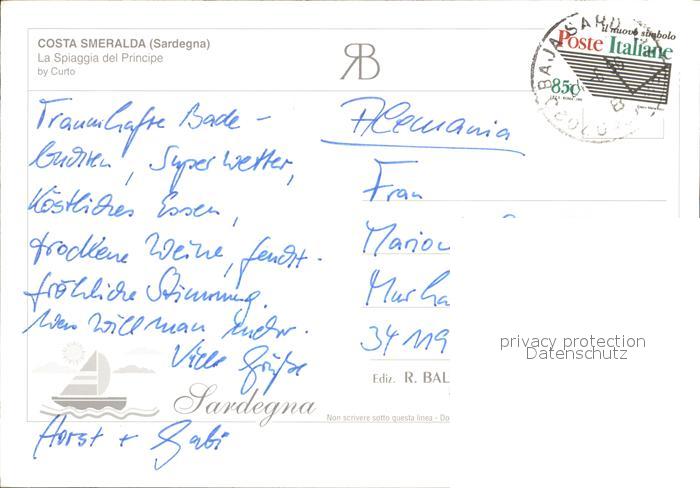 COSTA SMERALDA (Sardegna)
La Spiaggia del Principe
by Curto
RB
il nuovo simbolo
Poste Italiane
850
BAJA SARD
Traumhafte Bade-
buchten, Superwetter,
köstliches Essen,
trockene Weine, feucht-
fröhliche Stimmung.
Was will man mehr.
Viele Grüße
Horst + Gabi
Alemania
Frau
Mario
Murha
34 119
privacy protection
Datenschutz
Ediz. R. BAL
Sardegna
Non scrivere sotto questa linea - Do